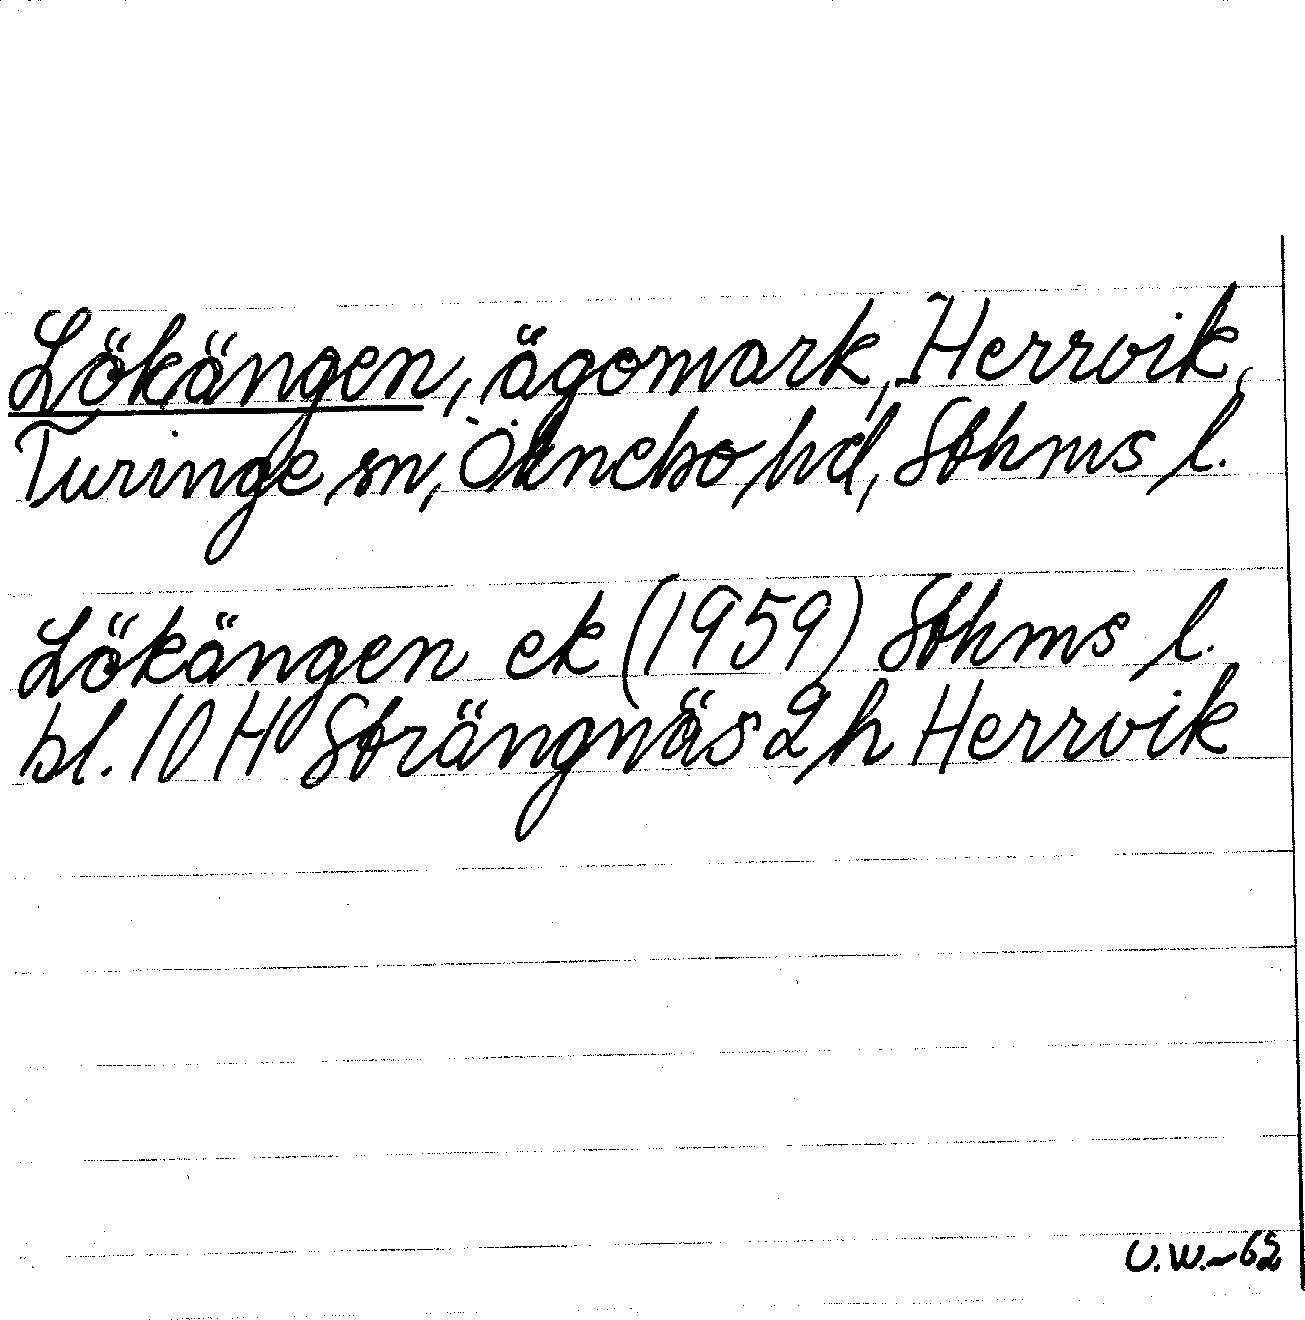 Lökängen, ägomark, Herrvik,
Turinge sn, Öknebo hd, Sthms l.
Lökängen ek (1959) Sthms l.
bl. 10 H Strängnäs 2 h Herrvik
U.W.-62